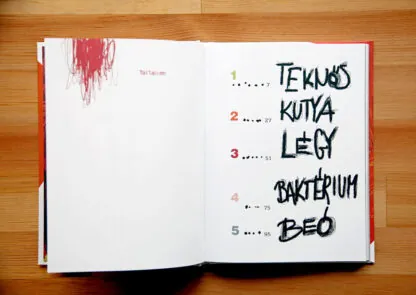 Tartalom
1 ....... 7 TEKNŐS
2 ..... 27 KUTYA
3 ...... 51 LÉGY
4 .... 75 BAKTÉRIUM
5 .... 95 BEÓ